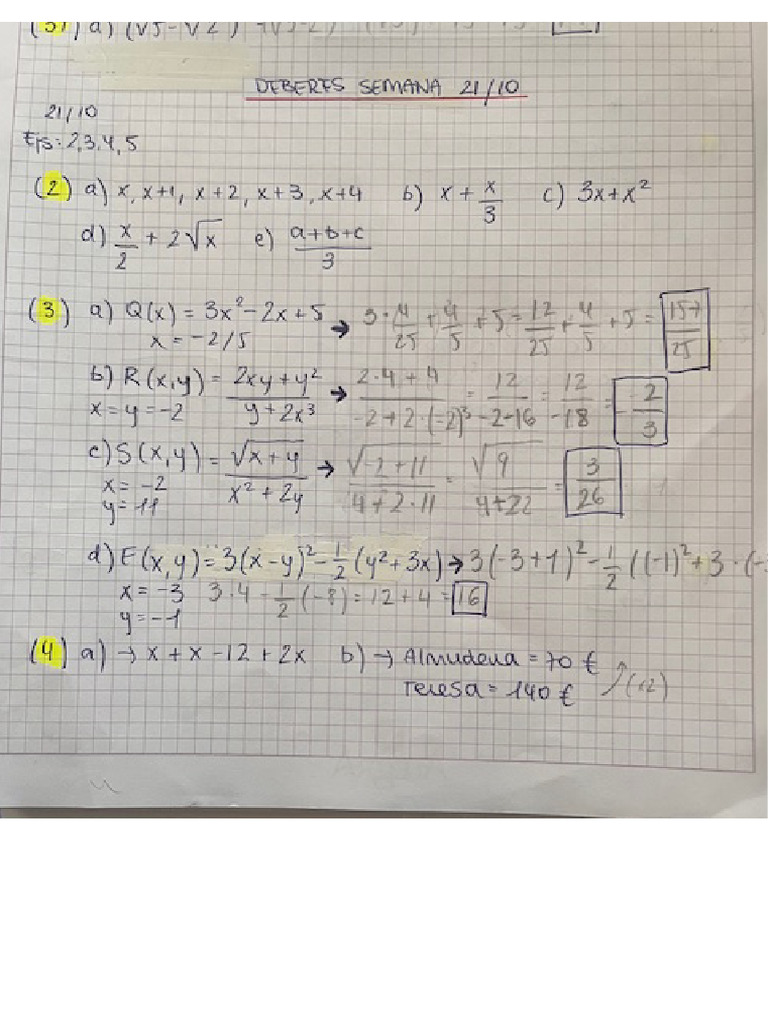 a) (√5-√2)
DEBERES SEMANA 21/10
21/10
Ejs: 2,3,4,5
(2) a) x, x+1, x+2, x+3, x+4 b) x + x/3 c) 3x+x²
d) x/2 + 2√x e) (a+b+c)/3
(3) a) Q(x) = 3x²-2x+5 → 3·4/25 + 4/5 + 5 = 12/25 + 4/5 + 5 = 157/25
x = -2/5
b) R(x,y) = (2xy+y²)/(y+2x³) → (2·4+4)/(-2+2·(-2)³) = 12/(-2-16) = 12/-18 = -2/3
x=y=-2
c) S(x,y) = √(x+y)/(x²+2y) → √(-2+11)/(4+2·11) = √9/(4+22) = 3/26
x=-2
y=11
d) E(x,y) = 3(x-y)²-1/2(y²+3x) → 3(-3+1)²-1/2((-1)²+3·(-
x = -3 3·4-1/2(-8) = 12+4 = 16
y=-1
(4) a) → x+x-12+2x b) → Almudena = 70 €
Teresa = 140 €